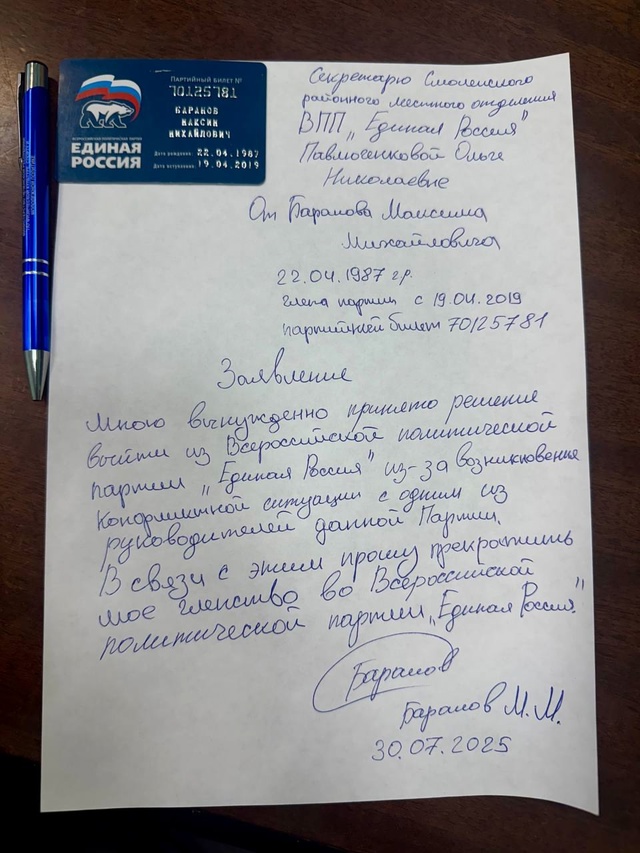 ПАРТИЙНЫЙ БИЛЕТ №
70125781
БАРАНОВ
МАКСИМ
МИХАЙЛОВИЧ
ВСЕРОССИЙСКАЯ ПОЛИТИЧЕСКАЯ ПАРТИЯ
ЕДИНАЯ
РОССИЯ
Дата рождения: 22.04.1987
Дата вступления: 19.04.2019
Секретарю Смоленского
районного местного отделения
ВПП „Единая Россия"
Павлюченковой Ольге
Николаевне
От Баранова Максима
Михайловича
22.04.1987 г.р.
члена партии с 19.04.2019
партийный билет 70125781
Заявление
Мною вынужденно принято решение
выйти из Всероссийской политической
партии „Единая Россия" из-за возникновения
конфликтной ситуации с одним из
руководителей данной Партии.
В связи с этим прошу прекратить
мое членство во Всероссийской
политической партии „Единая Россия."
Баранов
Баранов М.М.
30.07.2025